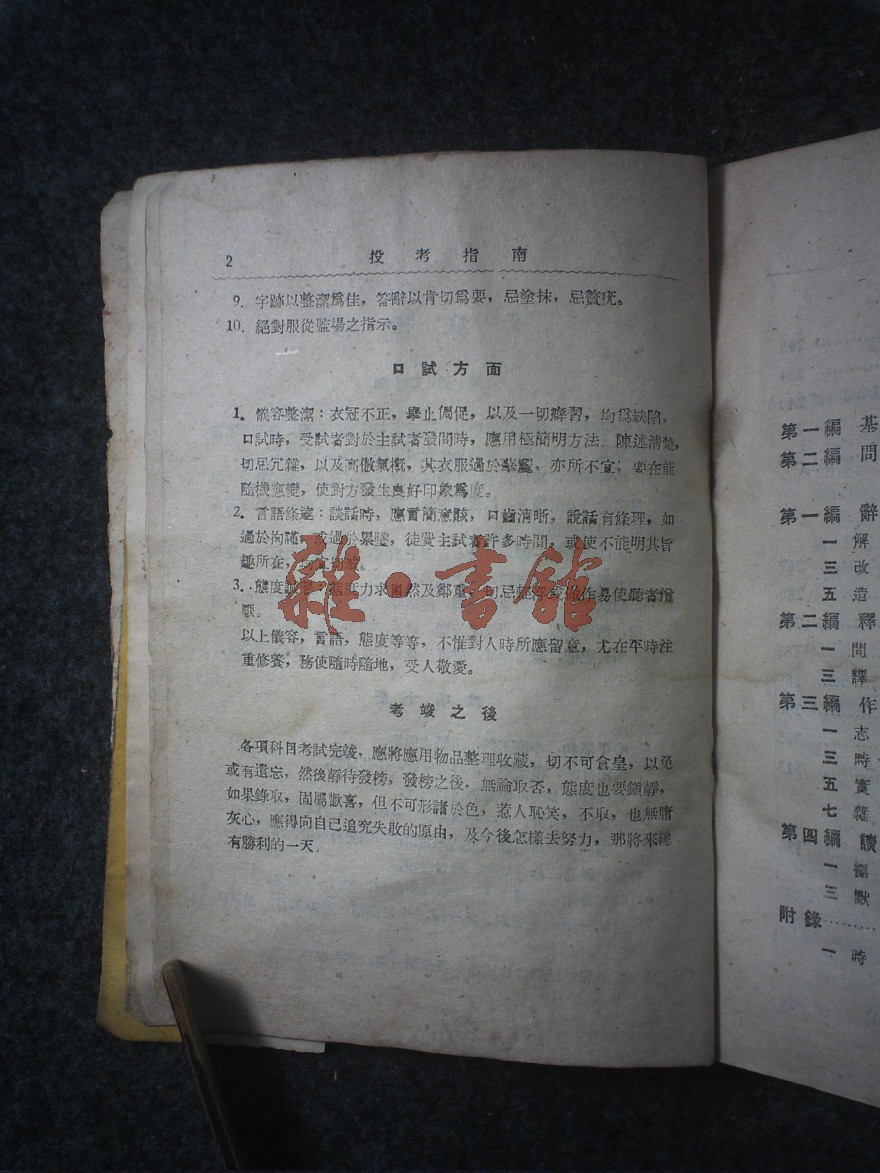 2 投考指南
9. 字跡以整潔爲佳，答辭以肯切爲要，忌塗抹，忌贅疣。
10. 絕對服從監場之指示。
口試方面
1. 儀容整潔：衣冠不正，舉止侷促，以及一切癖習，均爲缺陷，
口試時，受試者對於主試者發問時，應用極簡明方法，陳述清楚，
切忌冗雜，以及高傲氣概，其衣服過於華麗，亦所不宜；要在能
隨機應變，使對方發生良好印象爲度。
2. 言語條達：談話時，應言簡意賅，口齒清晰，說話有條理，如
過於拘謹，或過於累墜，徒費主試者許多時間，或使不能明其旨
趣所在，
3. 態度誠懇：態度力求自然及鄭重，切忌 作易使聽者憎
厭。
以上儀容，言語，態度等等，不惟對人時所應留意，尤在平時注
重修養，務使隨時隨地，受人敬愛。
考竣之後
各項科目考試完竣，應將應用物品整理收藏，切不可倉皇，以免
或有遺忘，然後靜待發榜，發榜之後，無論取否，態度也要鎮靜，
如果錄取，固屬歡喜，但不可形諸於色，惹人恥笑，不取，也無庸
灰心，應得向自己追究失敗的原由，及今後怎樣去努力，那將來總
有勝利的一天。
雜·書館
第一編 基
第二編 問
第一編 辭
一 解
三 改
五 造
第二編 釋
一 問
三 譯
第三編 作
一 志
三 時
五 實
七 雜
第四編 讀
一 標
三 默
附錄………
一 時